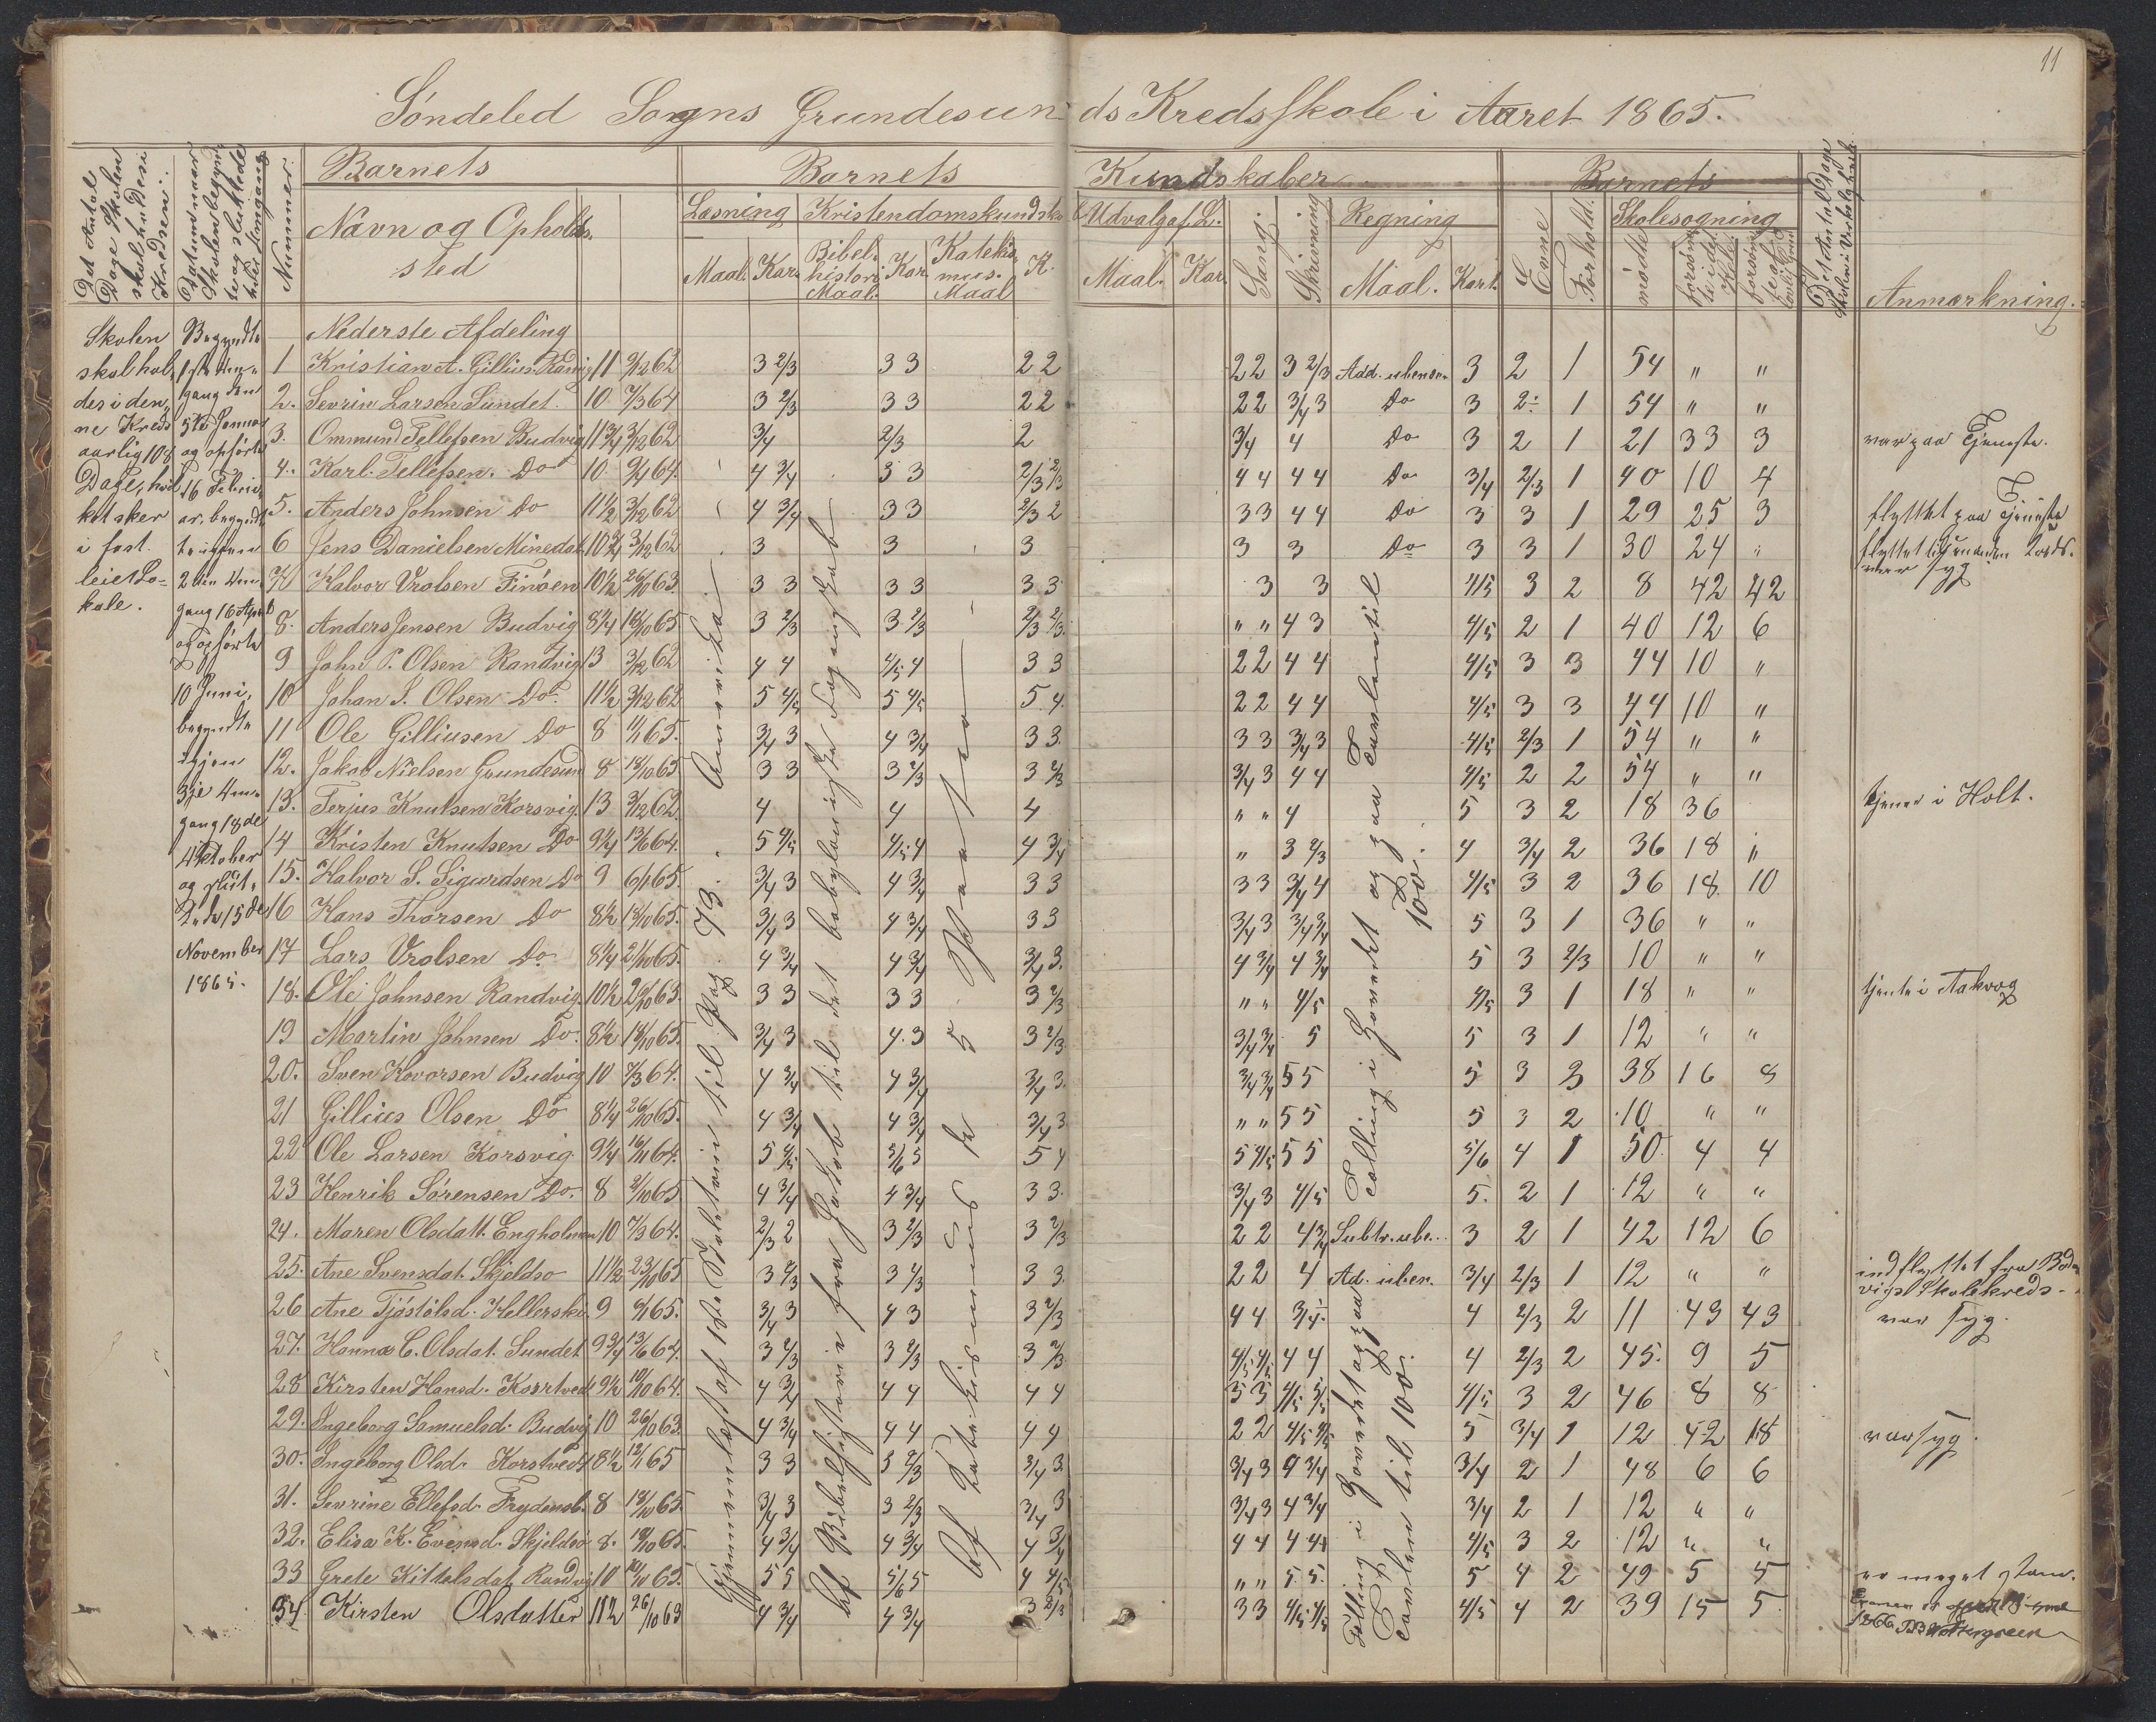 11
Søndeled Sogns Grundesunds Kredsskole i Aaret 1865.
Det Antal Dage Skolen skal holdes i Kredsen.
Datum naar Skolen begyndte og sluttede hver Omgang
Nummer.
Barnets
Navn og Opholdssted
Barnets Kundskaber
Læsning
Maal. Kar.
Kristendomskundsk.
Bibelhistorie Maal. Kar.
Katekismus. Maal K.
Udvalg af L.
Maal. Kar.
Sang.
Skrivning
Regning
Maal. Kart.
Barnets
Evne
Forhold.
Skolesøgning
mødte
forsømte i det Hele
Anmærkning.
Skolen skal holdes i denne Kreds aarlig 108 Dage, hvilket sker i fast leiet Lokale.
Begyndte 1ste Omgang den 5te Januar og opførte 16 Februar, begyndte igjen 2den Omgang 16 April og opførte 10 Juni, begyndte igjen 3je Omgang 18de Oktober og slut. 15de November 1865.
Nederste Afdeling
1 Kristian A. Gillius. Randvig 11 9/12 62 3 2/3 33 22 22 3 2/3 Add. ubenævn 3 2 1 54 " "
2. Sevrin Larsen Sundet. 10 7/3 64 3 2/3 33 22 22 3/4 3 Do 3 2 1 54 " "
3. Ommund Tellefsen Budvig 11 3/4 3/12 62 3/4 2/3 2 3/4 4 Do 3 2 1 21 33 3 var paa Tjeneste.
4. Karl Tellefsen. Do 10 9/4 64. 4 3/4 33 2/3 2/3 44 44 Do 3/4 2/3 1 40 10 4
5. Anders Johnsen Do 11 1/2 3/12 62 4 3/4 33 2/3 2 33 44 Do 3 3 1 29 25 3 flyttet paa Tjeneste
6 Jens Danielsen Minedal 10 3/4 3/12 62 3 3 3 3 3 Do 3 3 1 30 24 " flyttet til
7 Halvor Vrolsen Finøen 10 1/2 26/10 63. 33 33 33 3 3 4/5 3 2 8 42 42 var syg
8. Anders Jensen Budvig 8 1/4 18/10 65 3 2/3 3 2/3 2/3 2/3 " " 43 4/5 2 1 40 12 6
9 John P. Olsen Randvig 13 3/12 62 44 4/5 4 33 22 44 4/5 3 3 44 10 "
10 Johan J. Olsen Do. 11 1/2 3/12 62 5 4/5 5 4/5 5.4. 22 44 4/5 3 3 44 10 "
11 Ole Gilliusen Do 8 11/1 65. 3/4 3 4 3/4 33. 33 3/4 3 4/5 2/3 1 54 " "
12. Jakob Nielsen Grundesun 8 18/10 65 33 3 2/3 3 2/3 3/4 3 44 4/5 2 2 54 " "
13. Terjus Knutsen Korsvig. 13 3/12 62. 4 4 4 " " 4 5 3 2 18 36 tjener i Holt.
14 Kristen Knutsen Do 9 1/4 13/6 64. 5 4/5 4/5 4 4 3/4 " 3 2/3 4 3/4 2 36 18 "
15. Halvor S. Sigurdsen Do 9 6/1 65. 3/4 3 4 3/4 33 33 3/4 4 4/5 3 2 36 18. 10
16 Hans Thorsen Do 8 1/2 18/10 65. 3/4 3 4 3/4 33 3/4 3 3/4 3/4 5 3 1 36 " "
17 Lars Vrolsen Do. 8 1/4 21/10 65. 4 3/4 4 3/4 3/4 3. 4 3/4 4 3/4 5 3 2/3 10 " "
18. Ole Johnsen Randvig. 10 1/2 26/10 63. 33 33 3 2/3 " " 4/5 4/5 3 1 18 " " tjente i Aakvog
19 Martin Johnsen Do. 8 1/2 18/10 65. 3/4 3 4.3 3 2/3 3/4 3/4 5 5 3 1 12 " "
20. Sven Hovorsen Budvig 10 7/3 64. 4 3/4 4 3/4 3/4 3. 3/4 3/4 55 5 3 3 38 16 8
21 Gillius Olsen Do 8 1/4 26/10 65. 4 3/4 4 3/4 3/4 3 " " 55 5 3 2 10 " "
22 Ole Larsen Korsvig 9 1/4 16/11 64. 5 4/5 5/6 5 54 5 4/5 55 5/6 4 1 50 4 4
23 Henrik Sørensen Do. 8 2/10 65 4 3/4 4 3/4 33. 3/4 3 4/5 5. 2 1 12 " "
24. Maren Olsdatt. Engholmen 10 7/3 64. 2/3 2 3 2/3 3 2/3 22 4 3/4 Subtr. ube.. 3 2 1 42 12 6
25. Ane Svensdat. Skjeldsø 11 1/2 23/10 65 3 2/3 3 2/3 33. 22 4 Ad. uben. 3/4 2/3 1 12 " " indflyttet fra Bodvigs Skolekreds.
26 Ane Tjøstølsd. Hellerska 9 6/1 65. 3/4 3 43 3 2/3 44 3/4 4 2/3 2 11 43 43 var syg.
27. Hanna C. Olsdat. Sundet 9 3/4 13/6 64. 3 2/3 3 2/3 3 2/3 4/5 4/5 44 4 2/3 2 45. 9 5
28 Kirsten Hansd. Korstved 9 1/2 10/10 64. 4 3/4 44 44 33 4/5 4/5 4/5 3 2 46 8 8
29. Ingeborg Samuelsd. Budvig 10 26/10 63. 4 3/4 44 44 22 4/5 4/5 5 3/4 1 12 42 18 var syg.
30. Ingeborg Olsd. Korstved 8 1/2 12/1 65 33 3 2/3 3/4 3 3/4 3 4 3/4 3/4 2 1 48 6 6
31. Sevrine Ellefsd. Frydensb. 8 18/10 65. 3/4 3 3 2/3 3/4 3 3/4 3 4 3/4 3/4 2 1 12 " "
32. Elisa K. Evensd. Skjeldsø 8. 19/10 65. 4 3/4 4 3/4 4 3/4 44 44 4/5 3 2 12 " "
33 Grete Kittelsdat. Randvig 10 10/10 63. 55 5/6 5 4 4/5 " " 5.5. 5 4 2 49 5 5 er meget
34. Kirsten Olsdatter 11 1/2 26/10 63 4 3/4 4 3/4 3 2/3 33 4/5 4/5 4/5 4 2 39 15 5.
Gjennemlæst af 1ste pag. 73. Amerika.
Af Bibelhistorie fra Jakob til det babyloniske Fangenskab
Af Katekismus de 5 Parter
Tælling i Hovedet og paa Tavlen til 100.
Tælling i Hovedet og paa Tavlen til 100.
1866